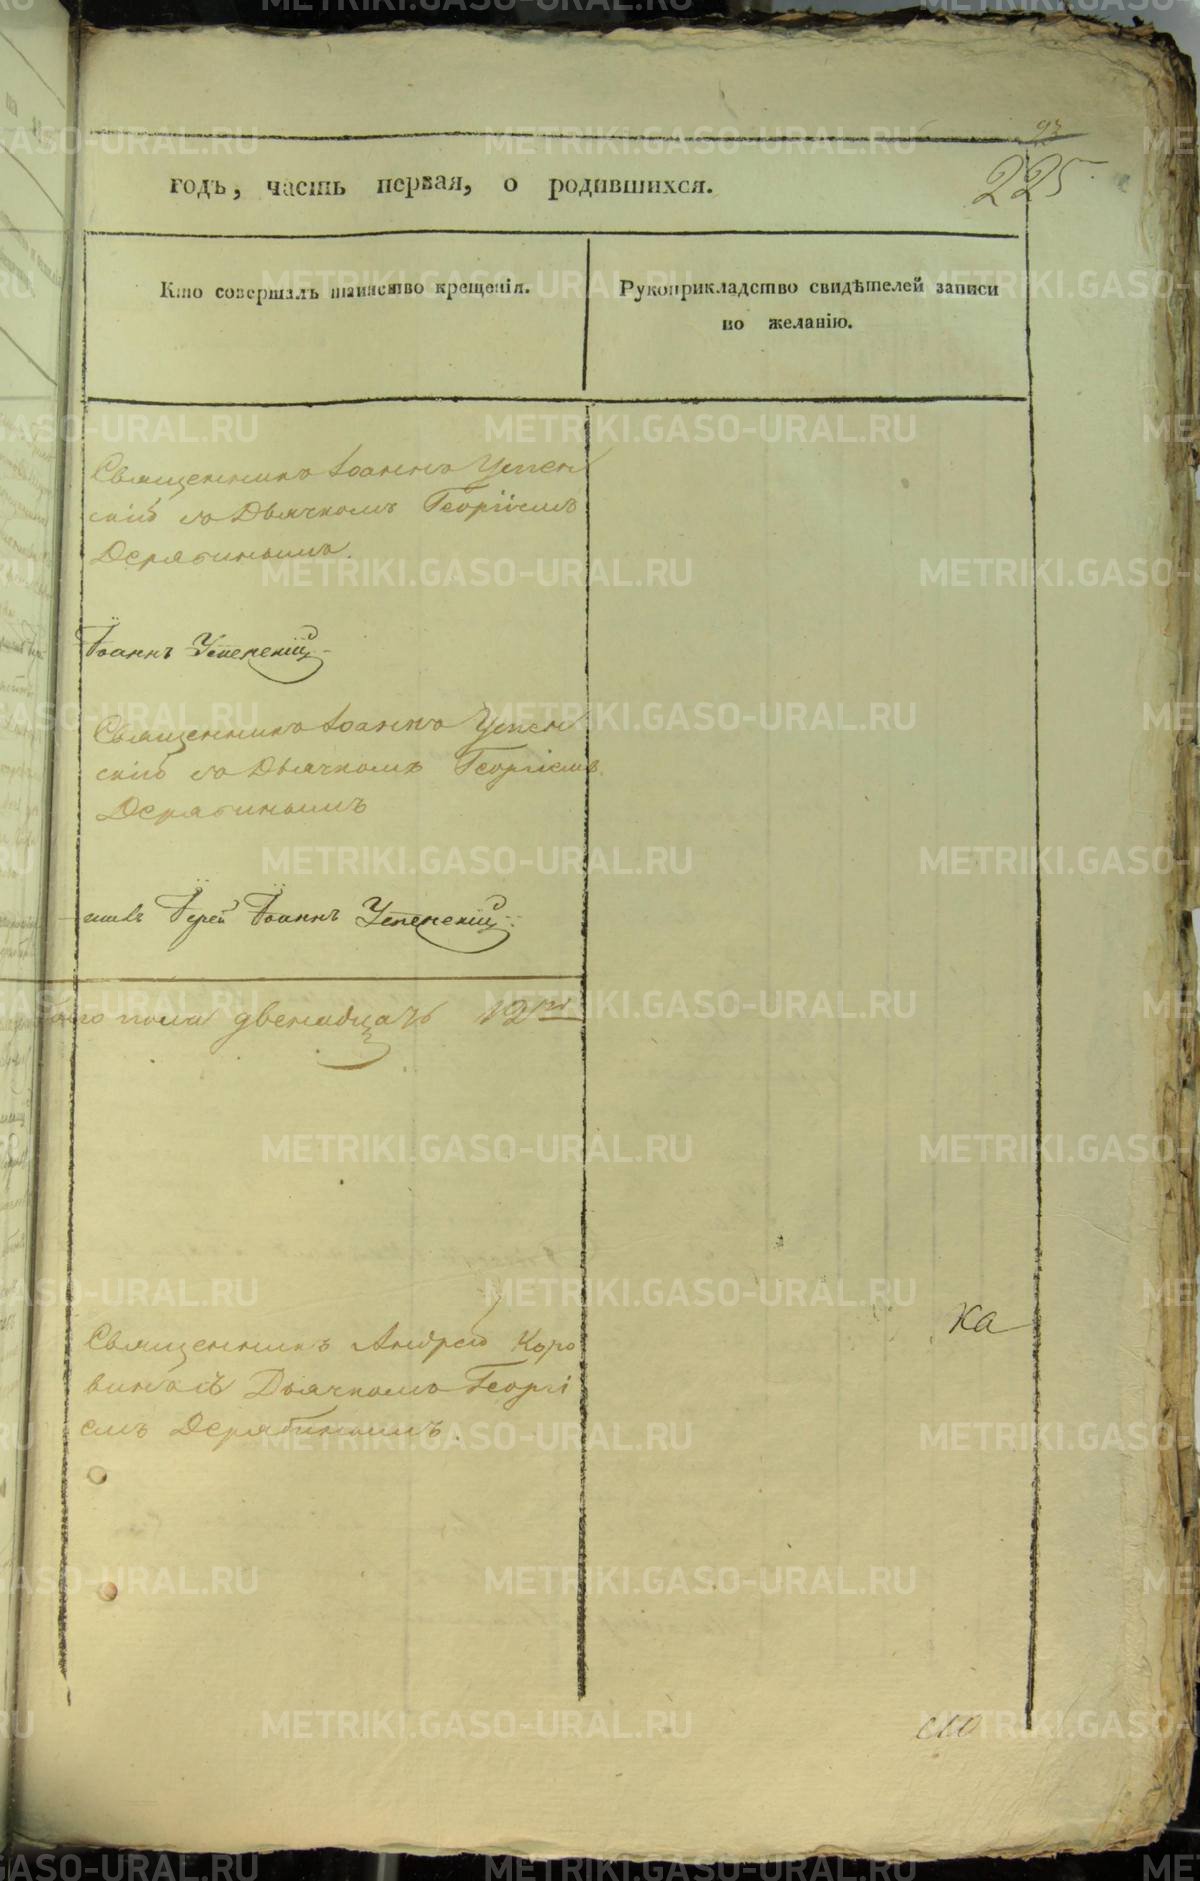 93
225
годъ, часть первая, о родившихся.
Кто совершалъ таинство крещенія.
Рукоприкладство свидѣтелей записи
по желанію.
Священникъ Іоаннъ Успен
скій съ Дьячкомъ Георгіемъ
Дерябинымъ.
Іоаннъ Успенскій
Священникъ Іоаннъ Успен
скій съ Дьячкомъ Георгіемъ
Дерябинымъ
Іерей Іоаннъ Успенскій
пола двенадцать 12
Священникъ Андрей Коро
винъ съ Дьячкомъ Георгі
емъ Дерябинымъ.
ка
METRIKI.GASO-URAL.RU